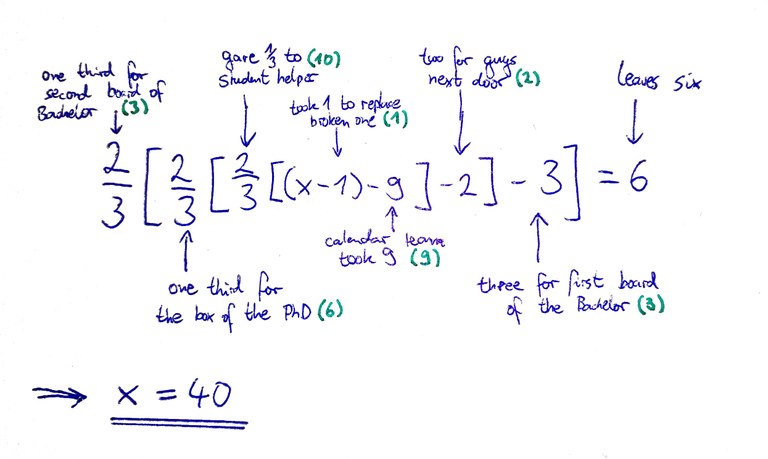 one third for
second board of
Bachelor (3)
gave 1/3 to (10)
student helper
took 1 to replace
broken one (1)
two for guys
next door (2)
leaves six
2/3 [ 2/3 [ 2/3 [(x-1) - 9 ] - 2 ] - 3 ] = 6
calendar
took 9 (9)
one third for
the box of the PhD (6)
three for first board
of the Bachelor (3)
⇒ x = 40